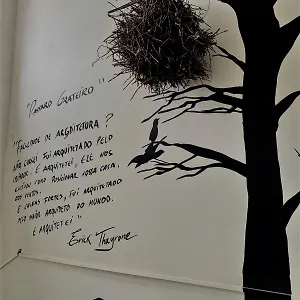 "Pássaro Grateiro"
"Faculdade de Argditetura?
Não cursei fui arquitetado pelo
criador. E arquitetei, ele nos
ensinou como posicionar nossa casa.
dos ventos.
E chuvas fortes, fui arquitetado
pelo maior arquiteto do mundo.
E arquitetei"
Erick Thayrone